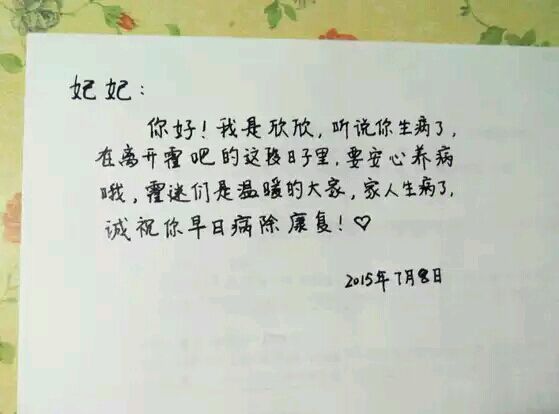 妃妃：
你好！我是欣欣，听说你生病了，
在离开霍吧的这段日子里，要安心养病
哦，霍迷们是温暖的大家，家人生病了，
诚祝你早日病除康复！♡
2015年7月8日